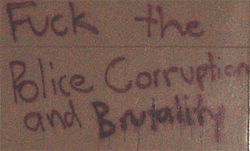 Fuck the
Police Corruption
and Brutality